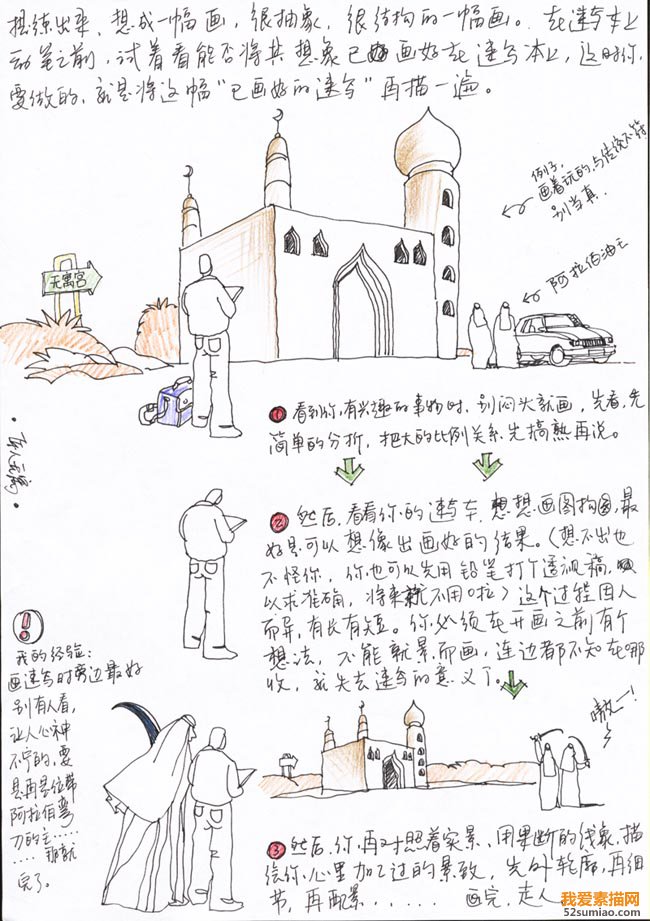 提练出来，想成一幅画，很抽象，很结构的一幅画。在速写本上
动笔之前，试着看能否将其想象已画好在速写本上，这时你，
要做的，就是将这幅“已画好的速写”再描一遍。
例子，
画着玩的，与传统不符
别当真.
无寓宫
阿拉伯油王
① 看到你，有兴趣的事物时，别闷头就画，先看，先
简单的分析，把大的比例关系先搞熟再说。
② 然后，看看你的速写本，想想画图构图，最
好是可以想像出画好的结果。（想不出也
不怪你，你也可以先用铅笔打个透视稿，
以求准确，将来就不用啦）这个过程因人
而异，有长有短。你必须在开画之前有个
想法，不能就景而画，连边都不知在哪
收，就失去速写的意义了。
!
我的经验：
画速写时旁边最好
别有人看，
让人心神
不宁的，要
是再是位带
阿拉伯弯
刀的主……
……那就
完了。
嗷～！
③ 然后，你再对照着实景，用果断的线象，描
绘你心里加工过的景致，先外轮廓，再细
节，再配景...... 画完，走人
我爱素描网
52sumiao.com